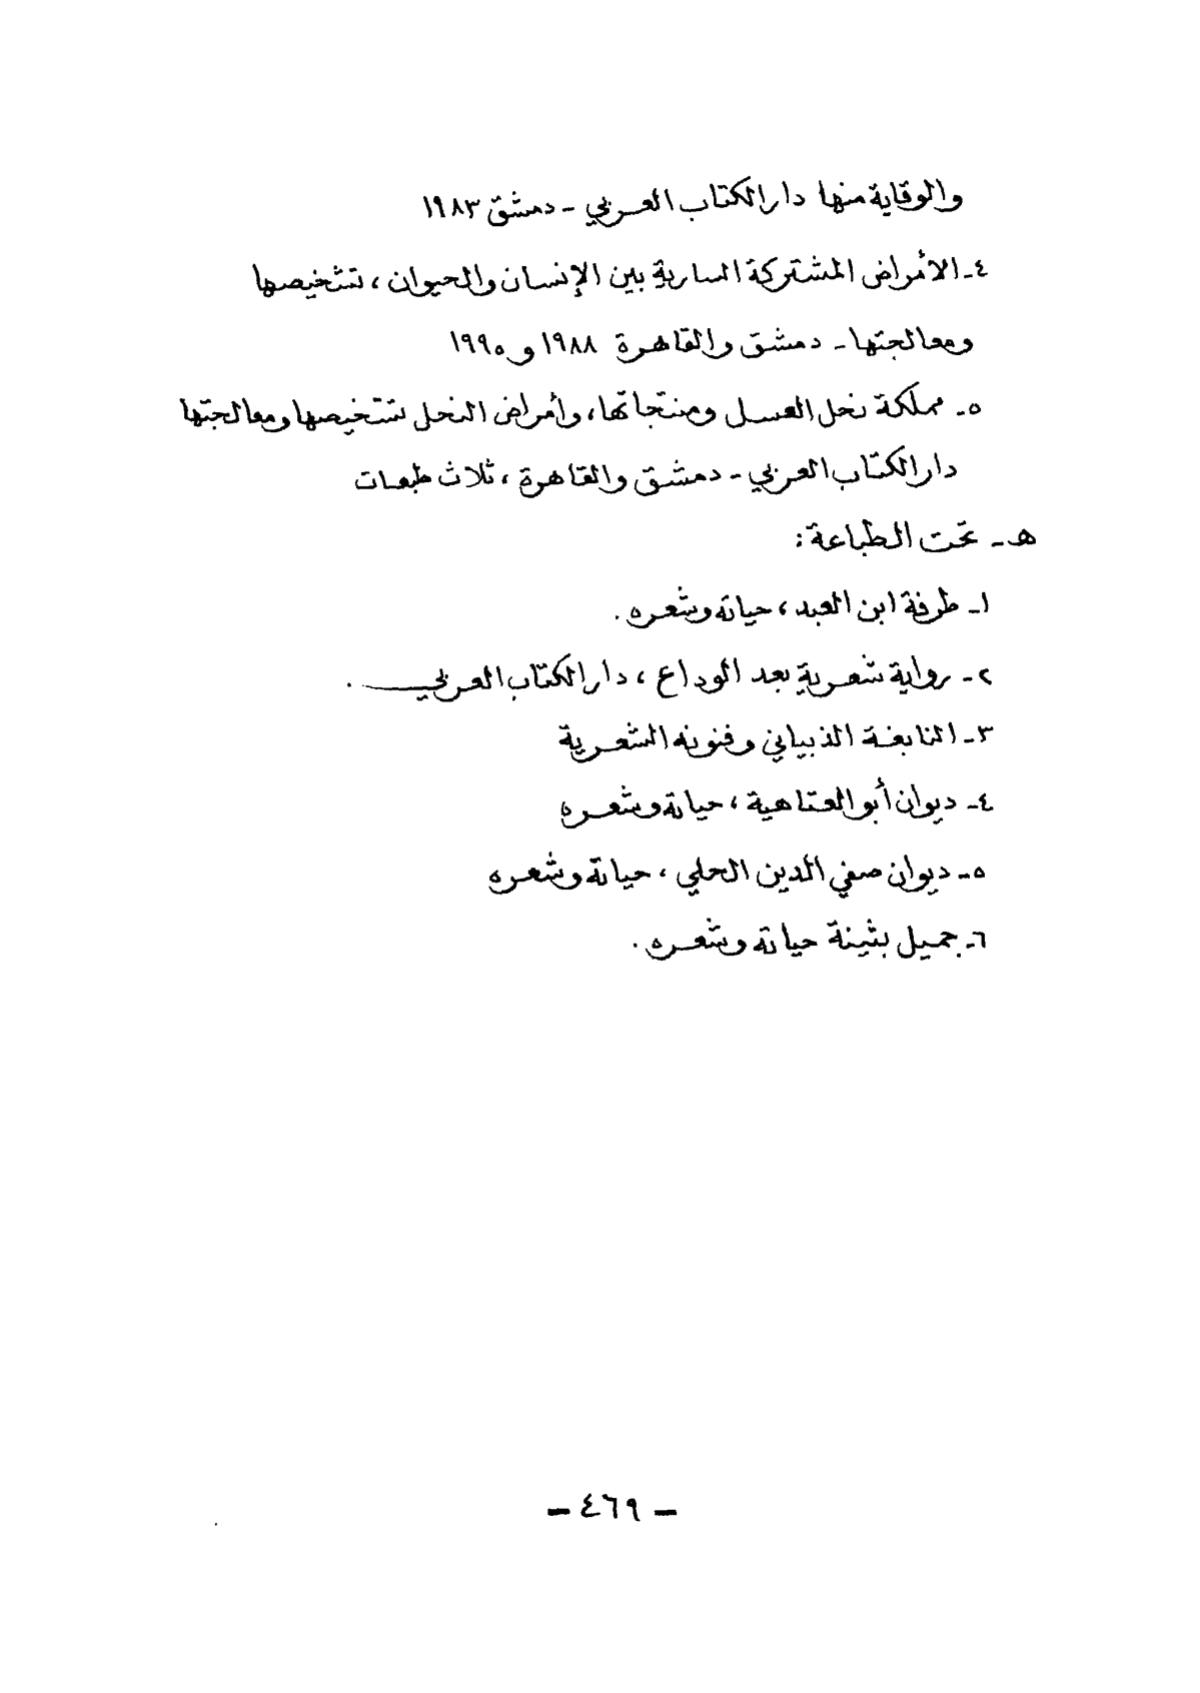 والوقاية منها دار الكتاب العربي - دمشق ١٩٨٣
٤- الأمراض المشتركة السارية بين الإنسان والحيوان، تشخيصها
ومعالجتها - دمشق والقاهرة ١٩٨٨ و ١٩٩٥
٥- مملكة نحل العسل ومنتجاتها، وأمراض النحل تشخيصها ومعالجتها
دار الكتاب العربي - دمشق والقاهرة، ثلاث طبعات
هـ - تحت الطباعة:
١- طرفة ابن العبد، حياته وشعره.
٢- رواية شعرية بعد الوداع، دار الكتاب العربي.
٣- النابغة الذبياني وفنونه الشعرية
٤- ديوان أبو العتاهية، حياته وشعره
٥- ديوان صفي الدين الحلي، حياته وشعره
٦- جميل بثينة حياته وشعره.
- ٤٦٩ -